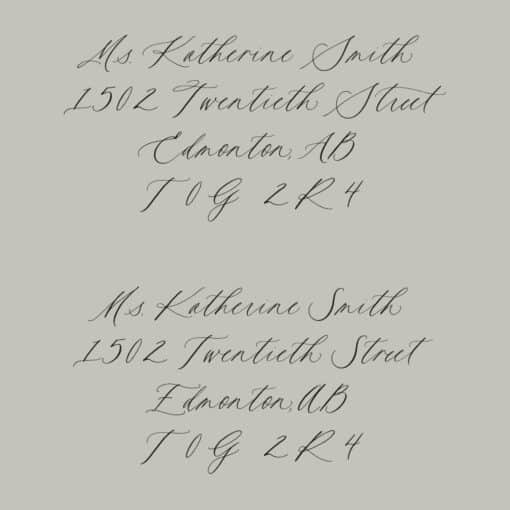 Ms. Katherine Smith
1502 Twentieth Street
Edmonton, AB
T0G 2R4
Ms. Katherine Smith
1502 Twentieth Street
Edmonton, AB
T0G 2R4